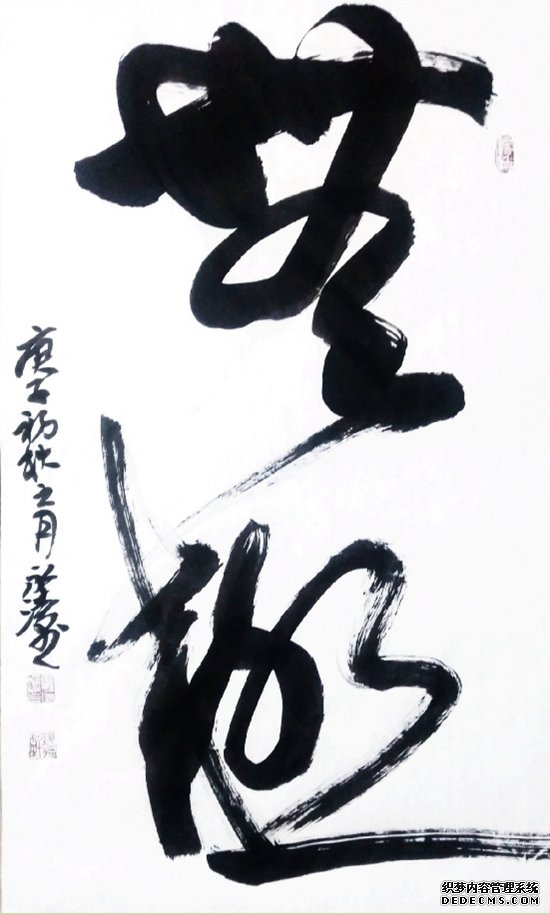 無極
庚子初秋之月
织梦内容管理系统
DEDECMS.COM